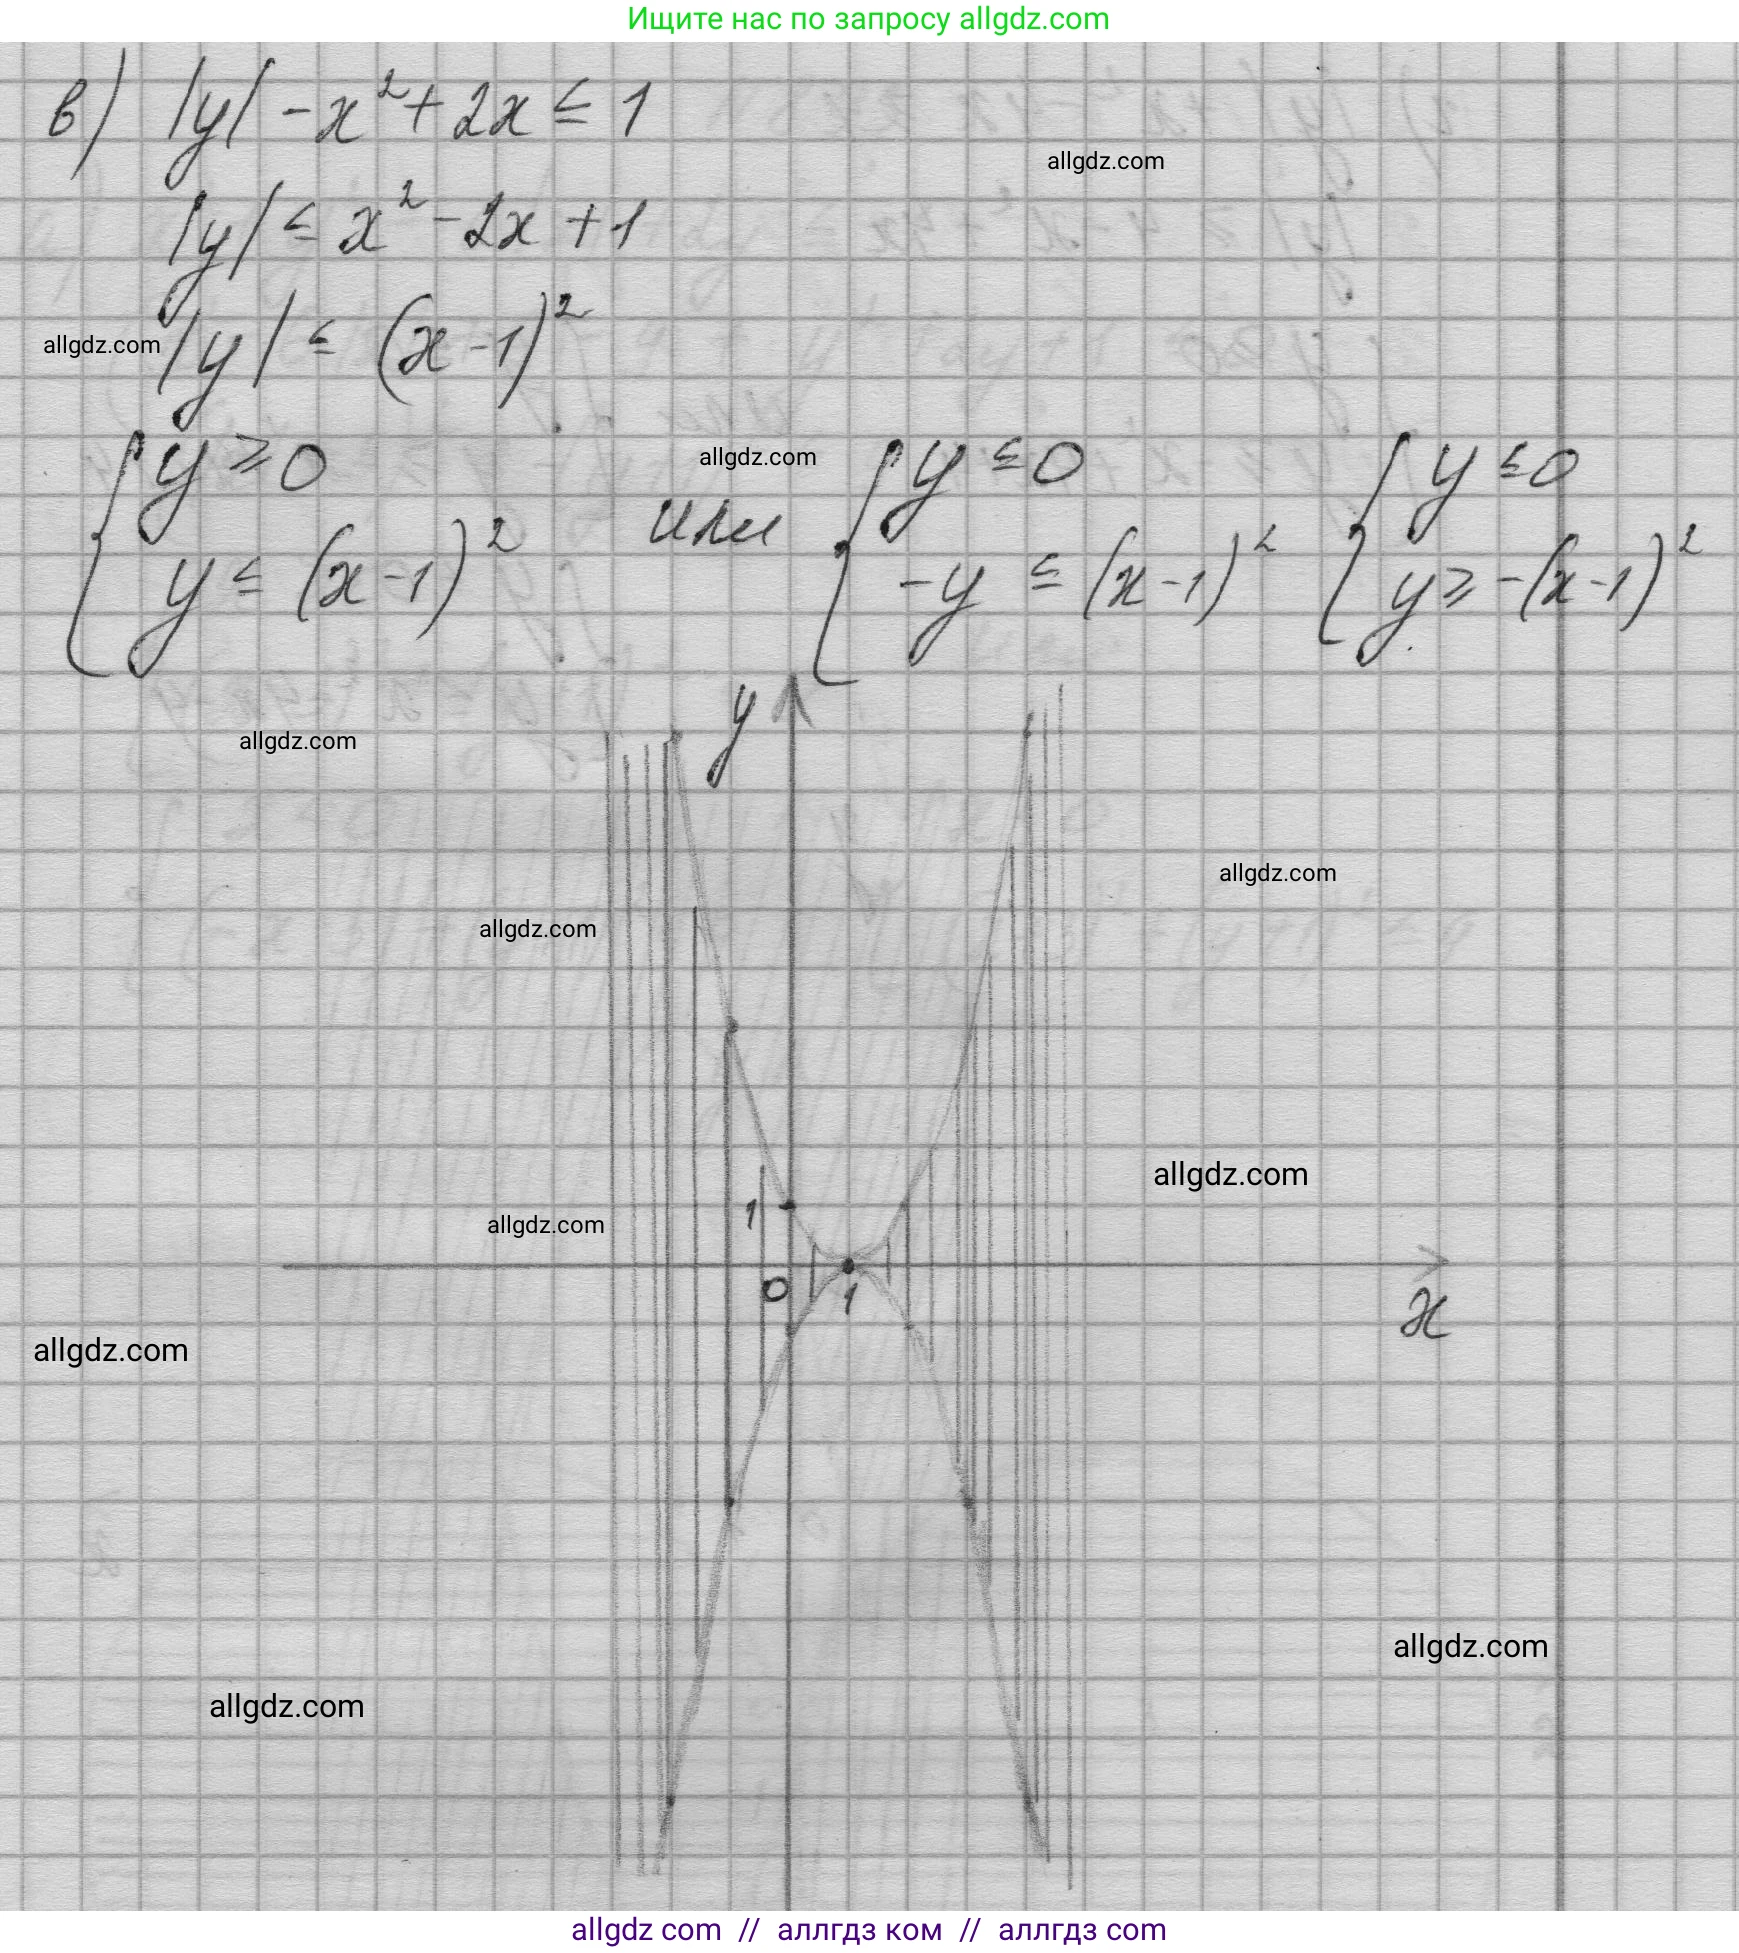 Ищите нас по запросу allgdz.com
в) |y| - x² + 2x ≤ 1
allgdz.com
|y| ≤ x² - 2x + 1
allgdz.com |y| ≤ (x - 1)²
{ y ≥ 0 allgdz.com { y ≤ 0 { y ≤ 0
или
y ≤ (x - 1)² -y ≤ (x - 1)² y ≥ -(x - 1)²
y
allgdz.com
allgdz.com
allgdz.com
allgdz.com
1
allgdz.com
0 1
x
allgdz.com
allgdz.com
allgdz.com
allgdz com // аллгдз ком // аллгдз com